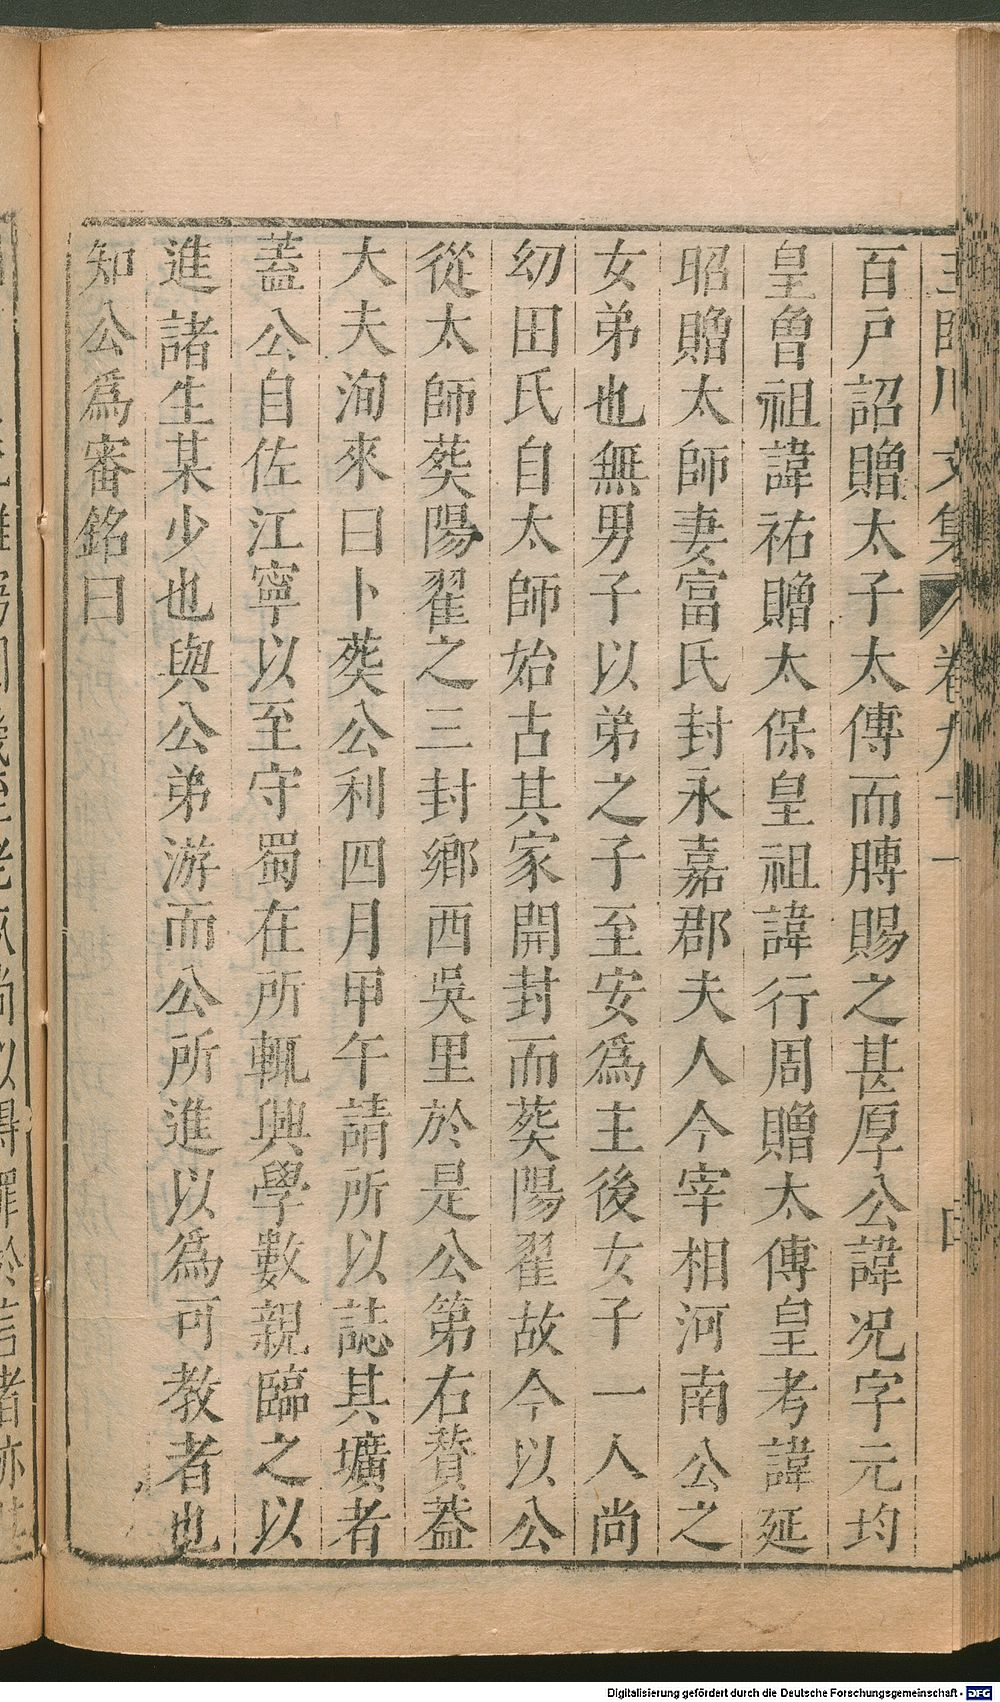 王臨川文集 卷九十一
百戶詔贈太子太傅而膊賜之甚厚公諱况字元均
皇曾祖諱祐贈太保皇祖諱行周贈太傅皇考諱延
昭贈太師妻富氏封永嘉郡夫人今宰相河南公之
女弟也無男子以弟之子至安爲主後女子一人尚
幼田氏自太師始占其家開封而葬陽翟故今以公
從太師葬陽翟之三封鄉西吳里於是公第右贊善
大夫洵來曰卜葬公利四月甲午請所以誌其壙者
蓋公自佐江寧以至守蜀在所輒興學數親臨之以
進諸生某少也與公弟游而公所進以爲可教者也
知公爲審銘曰
Digitalisierung gefördert durch die Deutsche Forschungsgemeinschaft - DFG